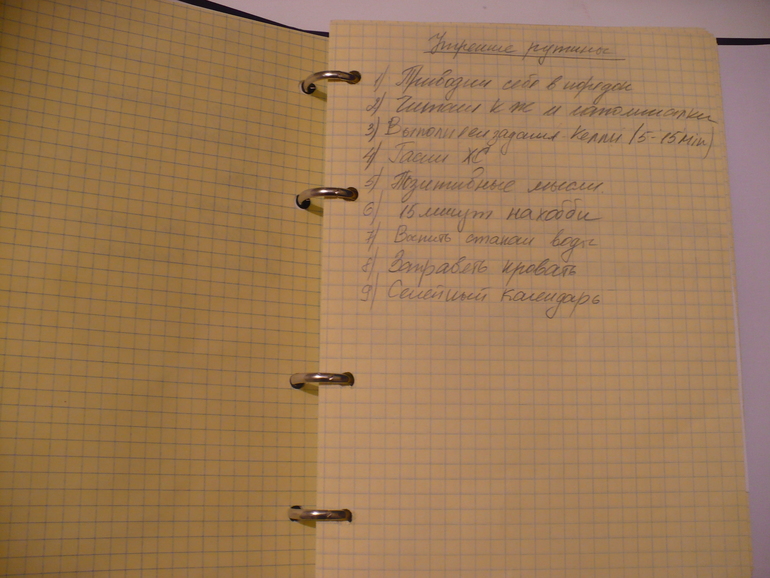 Утренние рутины
1) Приводим себя в порядок
2) Читаем КЖ и
3) Выполняем задания Келли (5-15 min)
4) Гасим ХС
5) Позитивные мысли
6) 15 минут на хобби
7) Выпить стакан воды
8) Заправить кровать
9) Семейный календарь